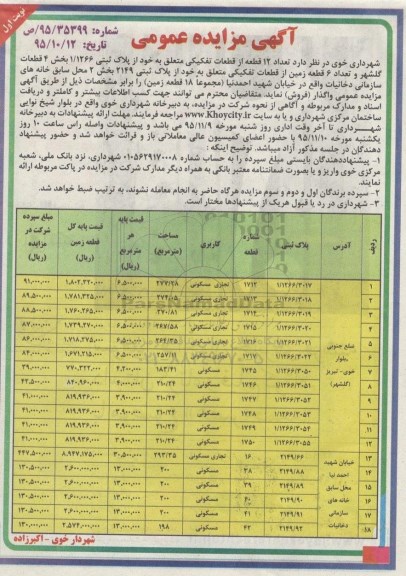 نوبت اول
آگهی مزایده عمومی
شماره: ۹۵/۳۵۳۹۹/ص
تاریخ: ۹۵/۱۰/۱۲
شهرداری خوی در نظر دارد تعداد ۱۲ قطعه از قطعات تفکیکی متعلق به خود از پلاک ثبتی ۱/۱۲۶۶ بخش ۴ قطعات
گلشهر و تعداد ۶ قطعه زمین از قطعات تفکیکی متعلق به خود از پلاک ثبتی ۲۱۴۹ بخش ۲ محل سابق خانه های
سازمانی دخانیات واقع در خیابان شهید احمدنیا (مجموعا ۱۸ قطعه زمین) را برابر مشخصات ذیل از طریق آگهی
مزایده عمومی واگذار (فروش) نماید. متقاضیان محترم می توانند جهت کسب اطلاعات بیشتر و کاملتر و دریافت
اسناد و مدارک مربوطه و آگاهی از نحوه شرکت در مزایده، به دبیرخانه شهرداری خوی واقع در بلوار شیخ نوایی
ساختمان مرکزی شهرداری و یا به سایت www.Khoycity.ir مراجعه فرمایند. مهلت ارائه پیشنهادات به دبیرخانه
شهرداری تا آخر وقت اداری روز شنبه مورخه ۹۵/۱۱/۹ می باشد و پیشنهادات واصله راس ساعت ۱۰ روز
یکشنبه مورخه ۹۵/۱۱/۱۰ با حضور اعضای کمیسیون عالی معاملاتی باز و قرائت خواهد شد و حضور پیشنهاد
دهندگان در جلسه مذکور آزاد میباشد. توضیح اینکه :
۱- پیشنهاددهندگان بایستی مبلغ سپرده را به حساب شماره ۰۱۰۵۶۲۹۱۷۰۰۰۸ شهرداری، نزد بانک ملی، شعبه
مرکزی خوی واریز و یا بصورت ضمانتنامه معتبر بانکی به همراه دیگر مدارک شرکت در مزایده در پاکت مربوطه ارائه
نمایند.
۲- سپرده برندگان اول و دوم و سوم مزایده هرگاه حاضر به انجام معامله نشوند، به ترتیب ضبط خواهد شد.
۳- شهرداری در رد یا قبول هریک از پیشنهادها مختار است.
ردیف آدرس پلاک ثبتی شماره قطعه کاربری مساحت (مترمربع) قیمت پایه هر مترمربع (ریال) قیمت پایه کل قطعه زمین (ریال) مبلغ سپرده شرکت در مزایده (ریال)
۱ ۱/۱۲۶۶/۳۰۱۷ ۱۷۱۲ تجاری مسکونی ۲۷۷/۲۸ ۶,۵۰۰,۰۰۰ ۱,۸۰۲,۳۲۰,۰۰۰ ۹۱,۰۰۰,۰۰۰
۲ ۱/۱۲۶۶/۳۰۱۸ ۱۷۱۳ تجاری مسکونی ۲۷۴/۰۵ ۶,۵۰۰,۰۰۰ ۱,۷۸۱,۳۲۵,۰۰۰ ۸۹,۵۰۰,۰۰۰
۳ ۱/۱۲۶۶/۳۰۱۹ ۱۷۱۴ تجاری مسکونی ۲۷۰/۸۱ ۶,۵۰۰,۰۰۰ ۱,۷۶۰,۲۶۵,۰۰۰ ۸۸,۵۰۰,۰۰۰
۴ ۱/۱۲۶۶/۳۰۲۰ ۱۷۱۵ تجاری مسکونی ۲۶۷/۵۸ ۶,۵۰۰,۰۰۰ ۱,۷۳۹,۲۷۰,۰۰۰ ۸۷,۰۰۰,۰۰۰
۵ ضلع جنوبی ۱/۱۲۶۶/۳۰۲۱ ۱۷۱۶ تجاری مسکونی ۲۶۴/۳۵ ۶,۵۰۰,۰۰۰ ۱,۷۱۸,۲۷۵,۰۰۰ ۸۶,۰۰۰,۰۰۰
۶ بلوار ۱/۱۲۶۶/۳۰۲۲ ۱۷۱۷ تجاری مسکونی ۶,۵۰۰,۰۰۰ ۱,۶۷۱,۲۱۵,۰۰۰ ۸۴,۰۰۰,۰۰۰
۷ خوی- تبریز ۱/۱۲۶۶/۳۰۵۰ ۱۷۴۵ مسکونی ۱۸۳/۴۱ ۴,۲۰۰,۰۰۰ ۷۷۰,۳۲۲,۰۰۰ ۳۹,۰۰۰,۰۰۰
۸ (گلشهر) ۱/۱۲۶۶/۳۰۵۱ ۱۷۴۶ مسکونی ۲۱۰/۲۴ ۴,۰۰۰,۰۰۰ ۸۴۰,۹۶۰,۰۰۰ ۴۲,۵۰۰,۰۰۰
۹ ۱/۱۲۶۶/۳۰۵۲ ۱۷۴۷ مسکونی ۲۱۰/۲۴ ۳,۹۰۰,۰۰۰ ۸۱۹,۹۳۶,۰۰۰ ۴۱,۰۰۰,۰۰۰
۱۰ ۱/۱۲۶۶/۳۰۵۳ ۱۷۴۸ مسکونی ۲۱۰/۲۴ ۳,۹۰۰,۰۰۰ ۸۱۹,۹۳۶,۰۰۰ ۴۱,۰۰۰,۰۰۰
۱۱ ۱/۱۲۶۶/۳۰۵۴ ۱۷۴۹ مسکونی ۲۱۰/۲۴ ۳,۹۰۰,۰۰۰ ۸۱۹,۹۳۶,۰۰۰ ۴۱,۰۰۰,۰۰۰
۱۲ ۱/۱۲۶۶/۳۰۵۵ ۱۷۵۰ مسکونی ۲۱۰/۲۴ ۳,۹۰۰,۰۰۰ ۸۱۹,۹۳۶,۰۰۰ ۴۱,۰۰۰,۰۰۰
۱۳ خیابان شهید ۲۱۴۹/۶۶ ۱۶ تجاری مسکونی ۲۹۳/۳۵ ۳۰,۵۰۰,۰۰۰ ۸,۹۴۷,۱۷۵,۰۰۰ ۴۴۷,۵۰۰,۰۰۰
۱۴ احمد نیا ۲۱۴۹/۸۸ ۳۸ مسکونی ۲۰۰ ۱۳,۰۰۰,۰۰۰ ۲,۶۰۰,۰۰۰,۰۰۰ ۱۳۰,۵۰۰,۰۰۰
۱۵ محل سابق ۲۱۴۹/۸۹ ۳۹ مسکونی ۲۰۰ ۱۳,۰۰۰,۰۰۰ ۲,۶۰۰,۰۰۰,۰۰۰ ۱۳۰,۵۰۰,۰۰۰
۱۶ خانه های ۲۱۴۹/۹۰ ۴۰ مسکونی ۲۰۰ ۱۳,۰۰۰,۰۰۰ ۲,۶۰۰,۰۰۰,۰۰۰ ۱۳۰,۵۰۰,۰۰۰
۱۷ سازمانی ۲۱۴۹/۹۱ ۴۱ مسکونی ۲۰۰ ۱۳,۰۰۰,۰۰۰ ۲,۶۰۰,۰۰۰,۰۰۰ ۱۳۰,۵۰۰,۰۰۰
۱۸ دخانیات ۲۱۴۹/۹۲ ۴۲ مسکونی ۱۹۸ ۱۳,۰۰۰,۰۰۰ ۲,۵۷۴,۰۰۰,۰۰۰ ۱۳۰,۰۰۰,۰۰۰
شهردار خوی - اکبرزاده